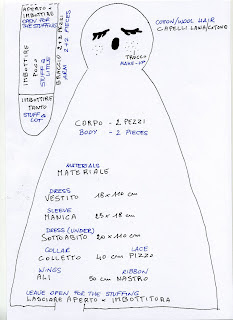 APERTO X
IMBOTTIRE
OPEN FOR THE STUFFING
IMBOTTIRE
POCO
STUFF A
LITTLE
IMBOTTIRE
TANTO
STUFF A
LOT
BRACCIO 2+2 PEZZI
ARM 2+2 PIECES
COTON/WOOL HAIR
CAPELLI LANA/COTONE
TRUCCO
MAKE-UP
CORPO - 2 PEZZI
BODY - 2 PIECES
MATERIALS
MATERIALE
DRESS
VESTITO 18 x 110 cm
SLEEVE
MANICA 25 x 18 cm
DRESS (UNDER)
SOTTOABITO 20 x 110 cm
COLLAR LACE
COLLETTO 40 cm PIZZO
WINGS RIBBON
ALI 50 cm NASTRO
LEAVE OPEN FOR THE STUFFING
LASCIARE APERTO X IMBOTTITURA